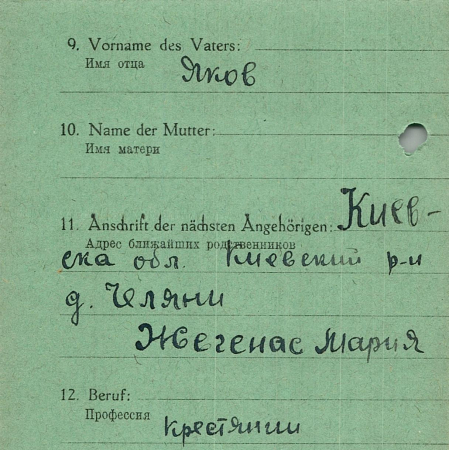 9. Vorname des Vaters:
Имя отца Яков
10. Name der Mutter:
Имя матери
11. Anschrift der nächsten Angehörigen: Киев-
Адрес ближайших родственников
ска обл. Киевский р-н
д. Челяни
Жегенас Мария
12. Beruf:
Профессия крестянин